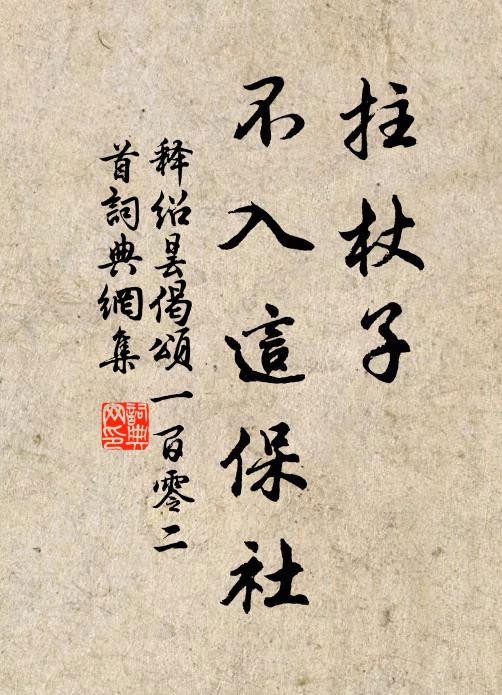 拄杖子
不入這保社
释绍昙偈頌一百零二
首詞典網集
詞典
网印